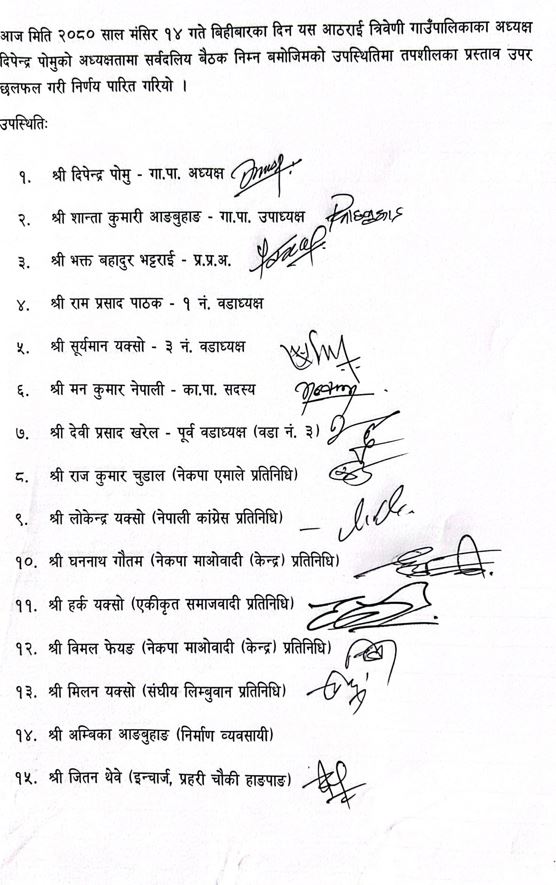 आज मिति २०८० साल मंसिर १४ गते बिहीबारका दिन यस आठराई त्रिवेणी गाउँपालिकाका अध्यक्ष
दिपेन्द्र पोमुको अध्यक्षतामा सर्वदलिय बैठक निम्न बमोजिमको उपस्थितिमा तपशीलका प्रस्ताव उपर
छलफल गरी निर्णय पारित गरियो ।
उपस्थितिः
१. श्री दिपेन्द्र पोमु - गा.पा. अध्यक्ष
२. श्री शान्ता कुमारी आङबुहाङ - गा.पा. उपाध्यक्ष
३. श्री भक्त बहादुर भट्टराई - प्र.प्र.अ.
४. श्री राम प्रसाद पाठक - १ नं. वडाध्यक्ष
५. श्री सूर्यमान यक्सो - ३ नं. वडाध्यक्ष
६. श्री मन कुमार नेपाली - का.पा. सदस्य
७. श्री देवी प्रसाद खरेल - पूर्व वडाध्यक्ष (वडा नं. ३)
८. श्री राज कुमार चुडाल (नेकपा एमाले प्रतिनिधि)
९. श्री लोकेन्द्र यक्सो (नेपाली कांग्रेस प्रतिनिधि)
१०. श्री घननाथ गौतम (नेकपा माओवादी (केन्द्र) प्रतिनिधि)
११. श्री हर्क यक्सो (एकीकृत समाजवादी प्रतिनिधि)
१२. श्री विमल फेयङ (नेकपा माओवादी (केन्द्र) प्रतिनिधि)
१३. श्री मिलन यक्सो (संघीय लिम्बुवान प्रतिनिधि)
१४. श्री अम्बिका आङबुहाङ (निर्माण व्यवसायी)
१५. श्री जितन थेवे (इन्चार्ज, प्रहरी चौकी हाङपाङ)